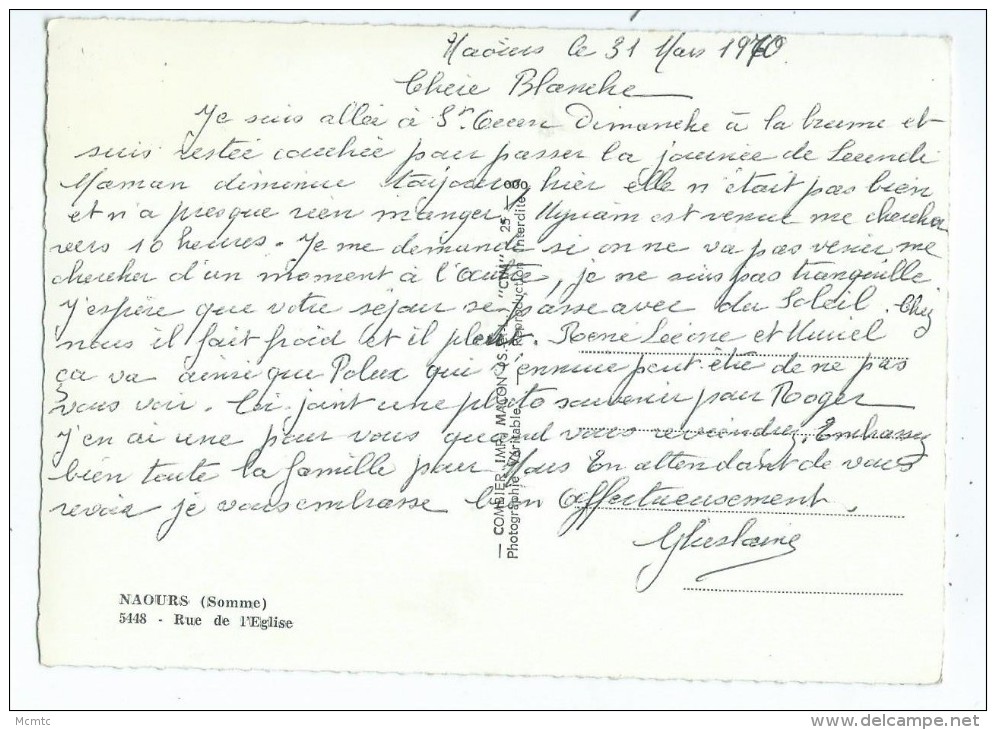 Naours le 31 Mars 1970.
Chère Blanche
Je suis allée à St. Ouen Dimanche à la brume et
suis restée couchée pour passer la journée de Lundi
Maman diminue toujours hier elle n'était pas bien
et n'a presque rien manger, est venue me chercher
vers 10 heures. Je me demande si on ne va pas venir me
chercher d'un moment à l'autre, je ne suis pas tranquille
J'espère que votre séjour se passe avec du Soleil. Chez
nous il fait froid et il pleut. René et Muriel
ça va ainsi que Polux qui s'ennuie peut être de ne pas
vous voir. Ci-joint une photo souvenir pour Roger
J'en ai une pour vous quand vous reviendrez, Embrassez
bien toute la famille pour Nous En attendant de vous
revoir je vous embrasse bien Affectueusement.
Ghislaine
— COMBIER IMP. MACON (S.-&-L.) "CIM" 25 — 000
Photographie Véritable — Reproduction Interdite
NAOURS (Somme)
5448 - Rue de l'Eglise
Mcmtc
delcampe.net